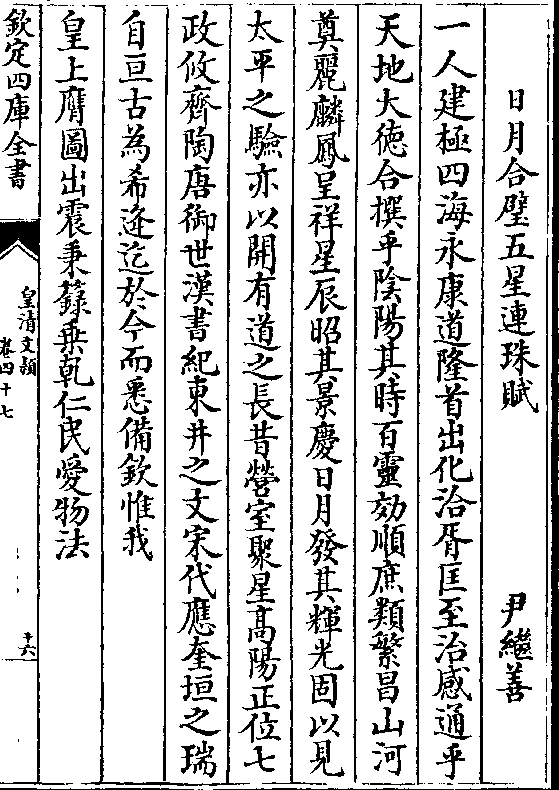 日月合璧五星連珠賦　尹繼善
一人建極四海永康道隆首出化洽胥匡至治感通乎
天地大徳合撰乎陰陽其時百靈効順庶類繁昌山河
奠麗麟鳳呈祥星辰昭其景慶日月發其輝光固以見
太平之驗亦以開有道之長昔營室聚星髙陽正位七
政攸齊陶唐御世漢書紀東井之文宋代應奎垣之瑞
自亘古為希逢迄於今而悉備欽惟我
皇上膺圖出震秉籙乗乾仁民愛物法
欽定四庫全書
皇清文穎
卷四十七
十六